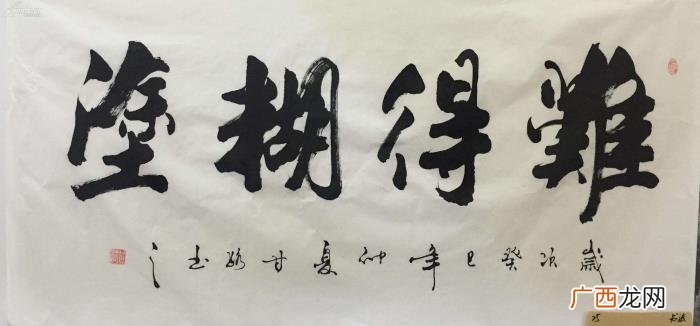 難得糊塗
歲次癸巳年仲夏甘书之
广西龙网